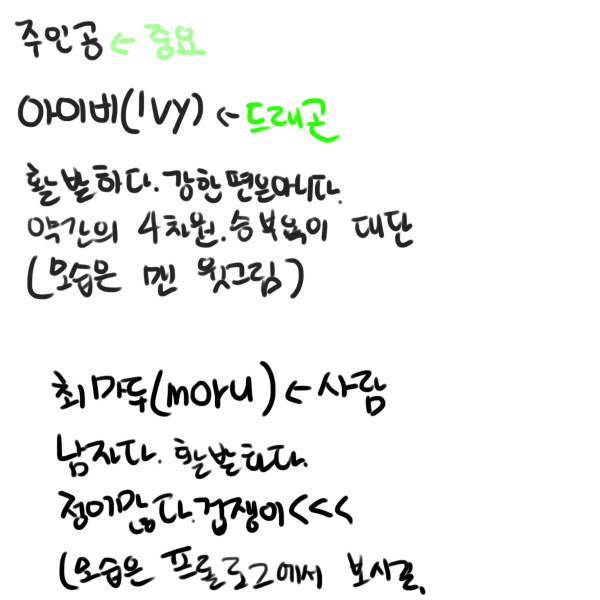 주인공 ← 중요
아이비(Ivy) ← 드래곤
활발하다. 강한편은아니다.
약간의 4차원. 승부욕이 대단
(모습은 맨 윗그림)
최마루(moru) ← 사람
남자다. 활발하다.
정이많다. 겁쟁이<<<
(모습은 프롤로그에서 보시길.